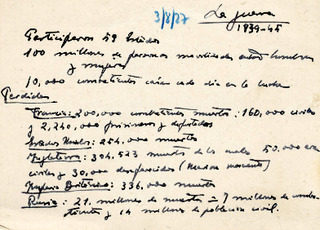 3/8/87
La guerra
1939-45
Participaron 59 Estados
100 millones de personas movilizadas entre hombres
y mujeres
10,000 combatientes caían cada día en la lucha
Perdidas
Francia: 200,000 combatientes muertos: 160,000 civiles
y 2,240,000 prisioneros y deportados
Estados Unidos: 254,000 muertos
Inglaterra: 394,523 muertos de los cuales 50,000 eran
civiles y 30,000 desaparecidos (Marina mercante)
Imperio Británico: 336,000 muertos
Rusia: 21 millones de muertos = 7 millones de comba-
tientes y 14 millones de poblacion civil.